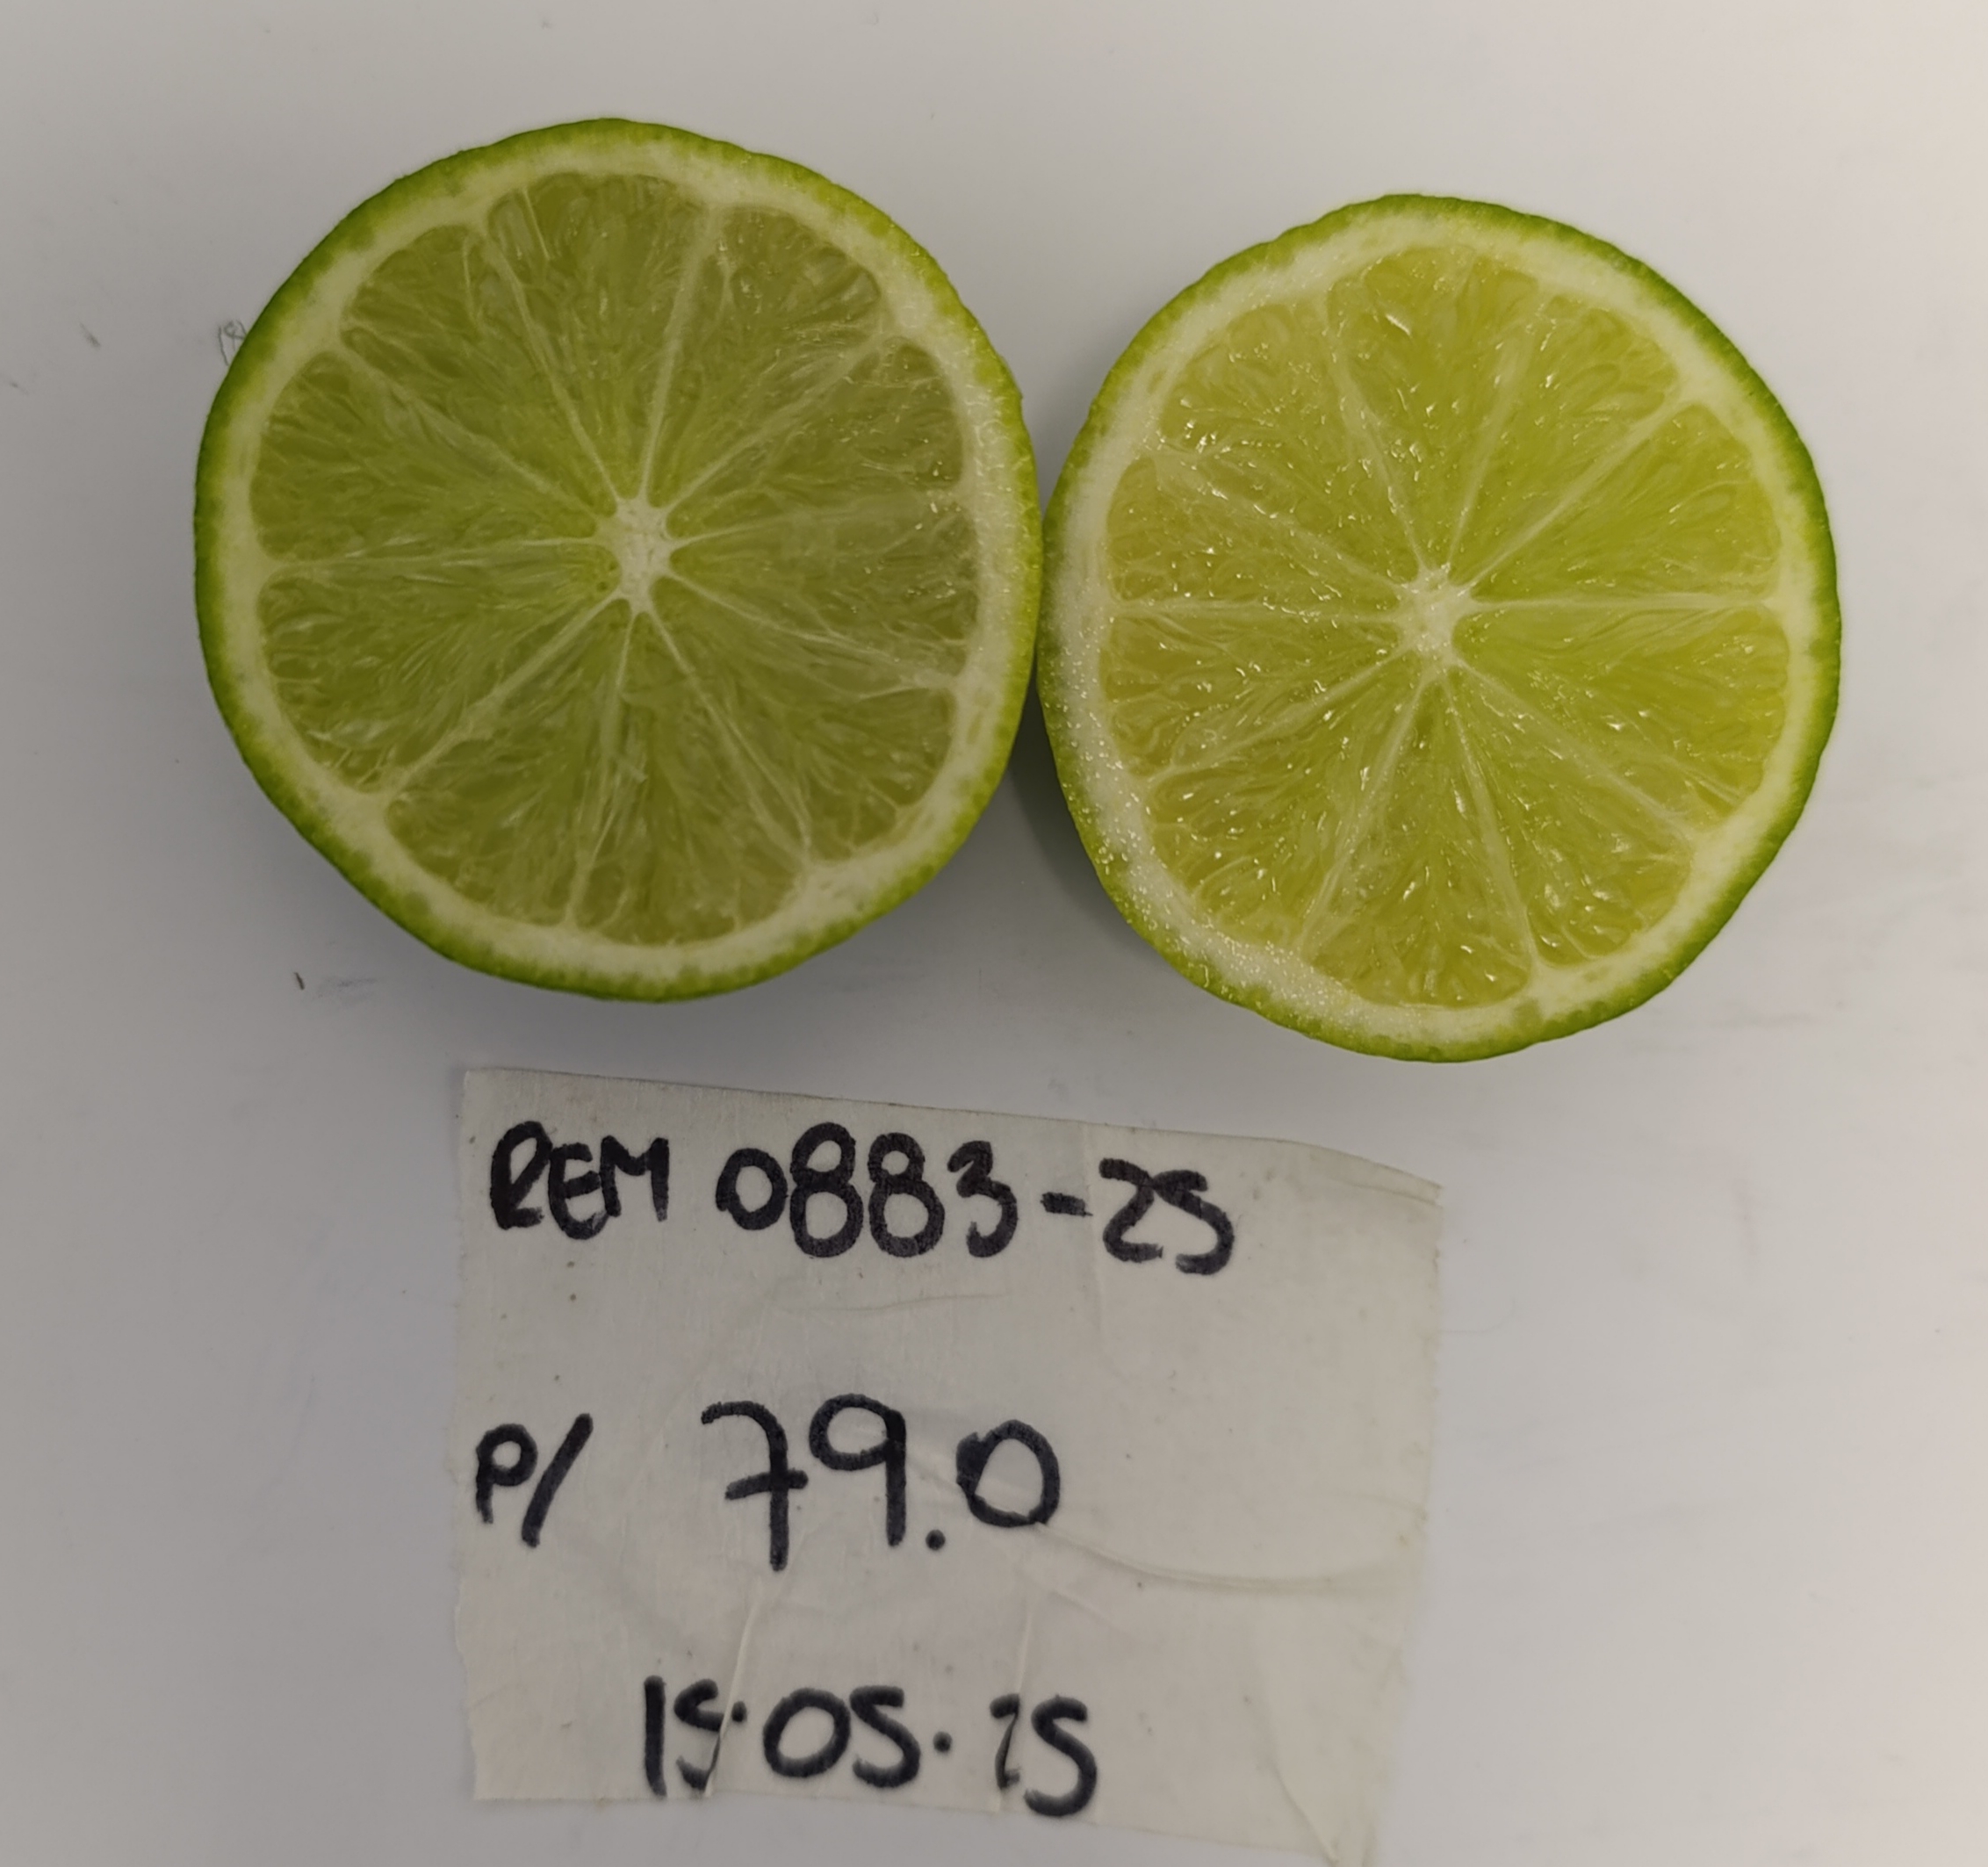 REM 0883-25
P/ 79.0
15.05.25